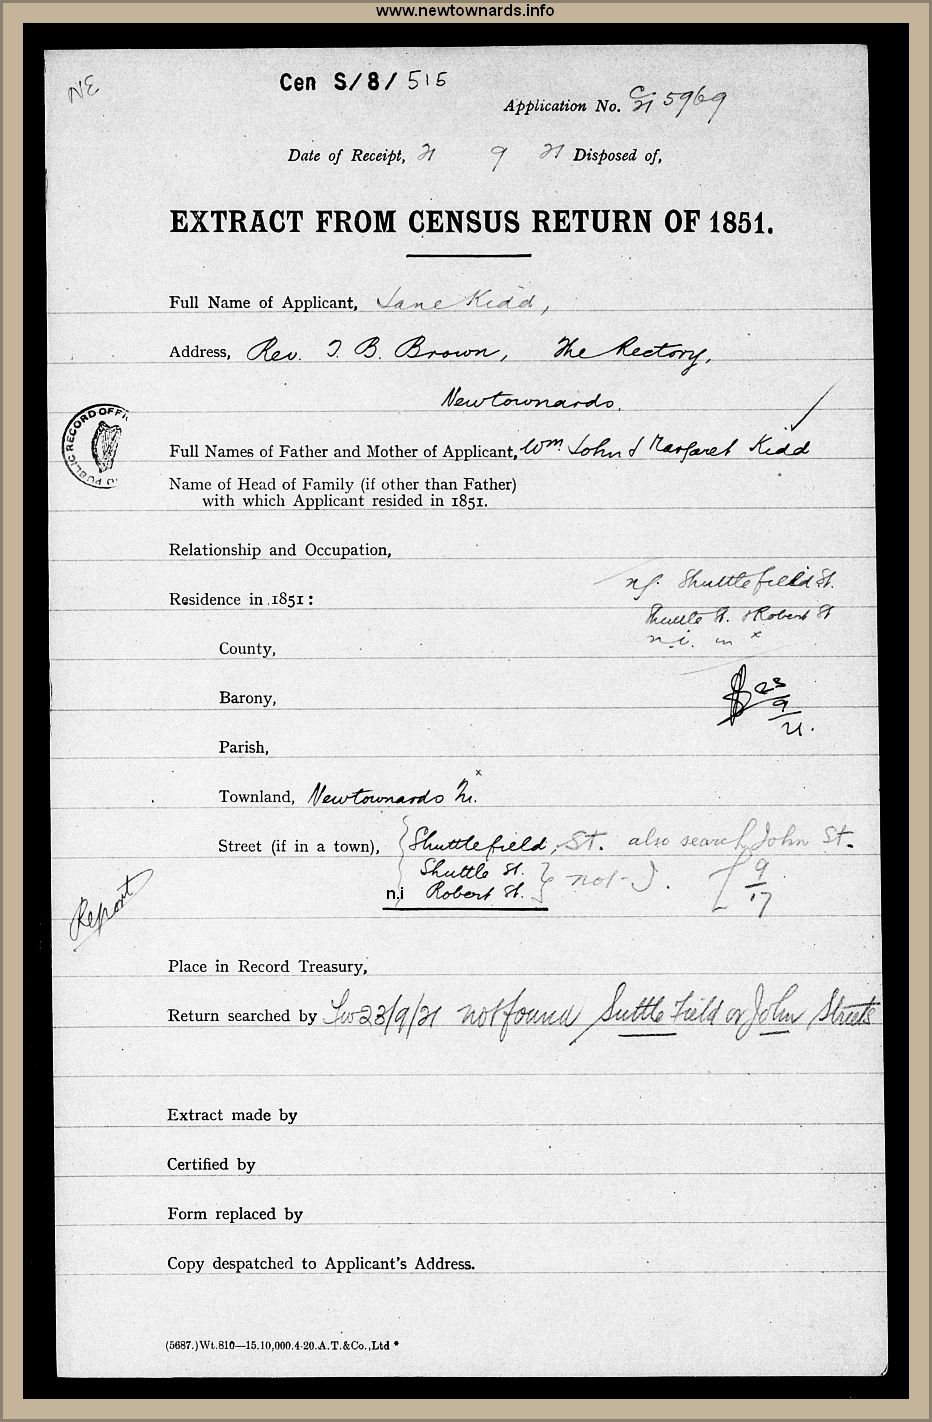 www.newtownards.info
NE
Cen S/8/515
Application No. C/21 5969
Date of Receipt, 21 9 21 Disposed of,
EXTRACT FROM CENSUS RETURN OF 1851.
Full Name of Applicant, Jane Kidd,
Address, Rev. T. B. Brown, The Rectory,
Newtownards.
PUBLIC RECORD OFFI
Full Names of Father and Mother of Applicant, Wm. John & Margaret Kidd
Name of Head of Family (if other than Father)
with which Applicant resided in 1851.
Relationship and Occupation,
n.f. Shuttlefield St.
Residence in 1851:
Shuttle St. & Robert St
n.i. in x
County,
23/9/21.
Barony,
Parish,
x
Townland, Newtownards
Street (if in a town), Shuttlefield, St. also search John St.
Shuttle St. not
n.i Robert St.
9/17
Report
Place in Record Treasury,
Return searched by 23/9/21 not found Suttle Field or John Streets
Extract made by
Certified by
Form replaced by
Copy despatched to Applicant's Address.
(5687.)Wt.810—15.10,000.4-20.A.T.&Co.,Ltd *